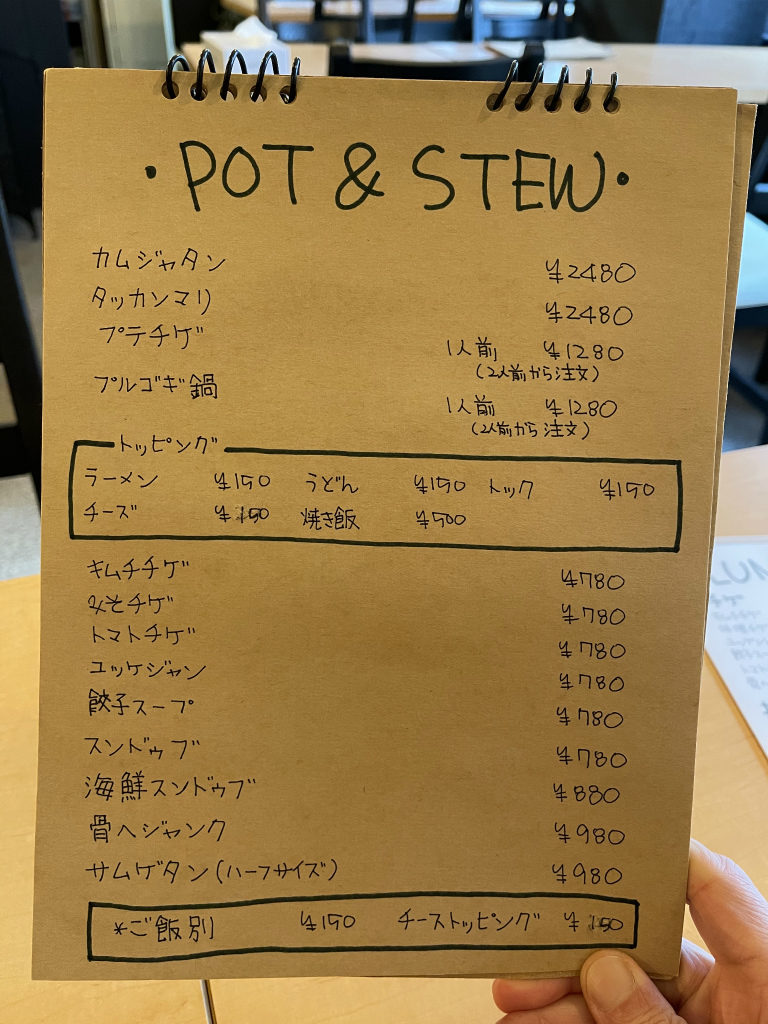 ・POT & STEW・
カムジャタン ¥2480
タッカンマリ ¥2480
プテチゲ 1人前 ¥1280
(2人前から注文)
プルゴギ鍋 1人前 ¥1280
(2人前から注文)
トッピング
ラーメン ¥150 うどん ¥150 トック ¥150
チーズ ¥150 焼き飯 ¥500
キムチチゲ ¥780
みそチゲ ¥780
トマトチゲ ¥780
ユッケジャン ¥780
餃子スープ ¥780
スンドゥブ ¥780
海鮮スンドゥブ ¥880
骨ヘジャンク ¥980
サムゲタン(ハーフサイズ) ¥980
*ご飯別 ¥150 チーストッピング ¥150